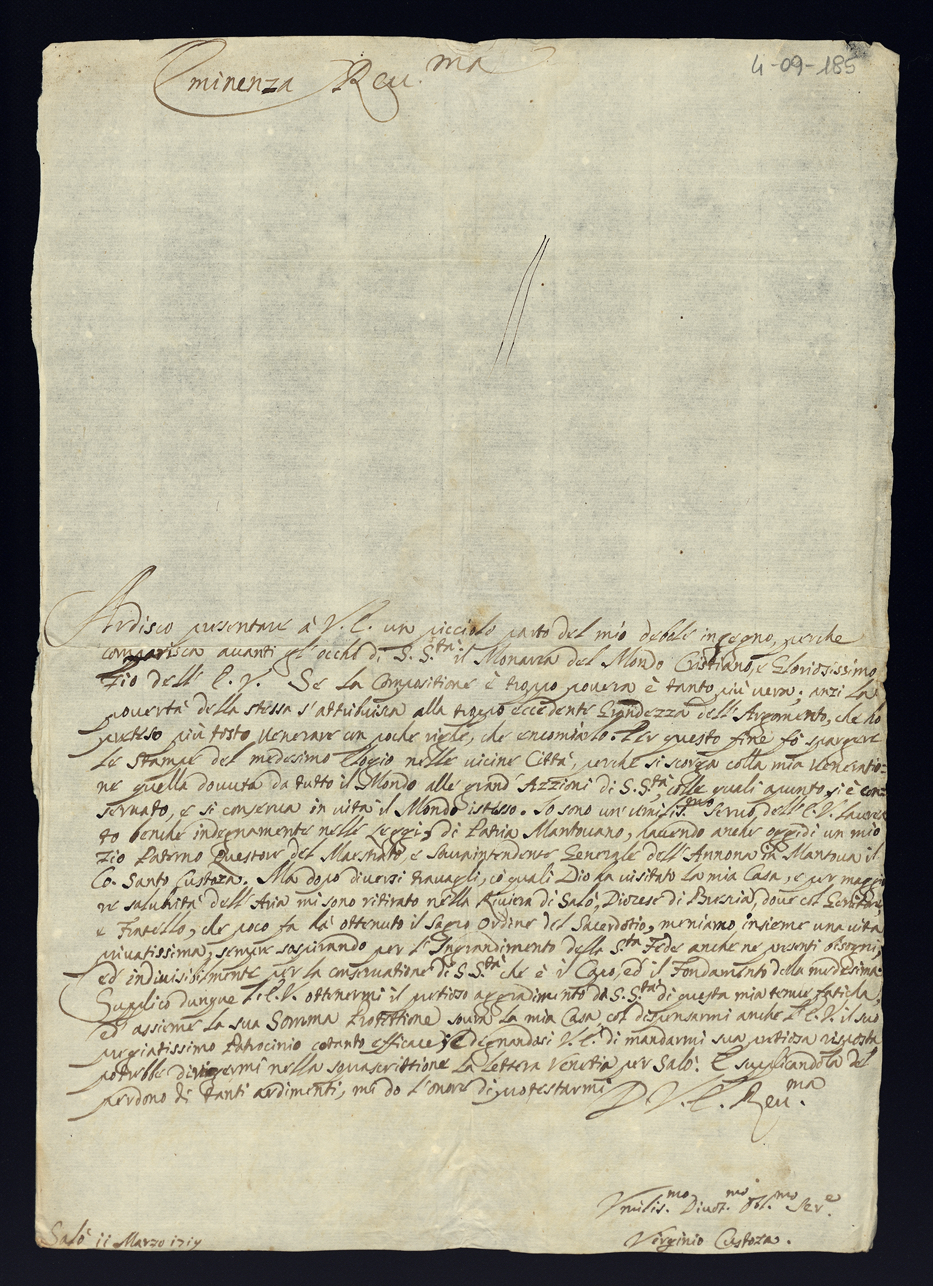 Eminenza Reu.ma
4-09-185
Ardisco presentare à V. E. un picciolo parto del mio debole ingegno, perche
comparisca auanti gl'occhi di S. S.tà il Monarca del Mondo Cristiano, e Gloriosissimo
Zio dell' E. V. Se la Compositione è troppo pouera è tanto più uera. anzi la
pouertà della stessa s'attribuisca alla troppo eccedente Grandezza dell'Argomento, che hò
preteso più tosto uenerare in poche righe, che encomiarlo. Per questo fine fò spargere
le stampe del medesimo Elogio nelle uicine Città, perche si scorga colla mia Veneratio-
ne quella douuta da tutto il Mondo alle grand' Azzioni di S. S.tà, colle quali apunto si è con-
seruato, e si conserua in uita il Mondo istesso. Io sono un' umilis.mo Seruo dell' E. V. laurea-
to benche indegnamente nelle Leggi, di Patria Mantouano, hauendo anche oggidì un mio
Zio Paterno Questore del Maestrato, e Sourintendente Generale dell'Annona in Mantoua il
Co. Santo Custoza. Ma dopo diuersi trauagli, co' quali Dio ha uisitato la mia Casa, e per maggio-
re salubrità dell'Aria mi sono ritirato nella Riuiera di Salò, Diocese di Brescia, doue col Genitore,
e Fratello, che poco fà hà ottenuto il Sagro Ordine del Sacerdotio, meniamo insieme una uita
priuatissima, sempre sospirando per l'Ingrandimento della S.ta Fede anche ne presenti bisogni,
ed indiuisibilmente per la conseruatione di S. S.tà che è il Capo, ed il Fondamento della medesima.
Supplico dunque l'E. V. ottenermi il pretioso aggradimento da S. S.tà di questa mia tenue fatica,
ed' assieme la sua Somma Protettione soura la mia Casa col dispensarmi anche l'E. V. il suo
pregiatissimo Patrocinio cotanto efficace; e degnandosi V. E. di mandarmi sua pretiosa risposta
potrebbe dirigermi nella soprascrittione la Lettera Venetia per Salò. E supplicandola del
perdono di tanti ardimenti, mi do l'onore di protestarmi
D. V. E. Reu.ma
Vmilis.mo Diuot.mo Obl.mo Ser.e
Virginio Custoza.
Salò 11 Marzo 1719